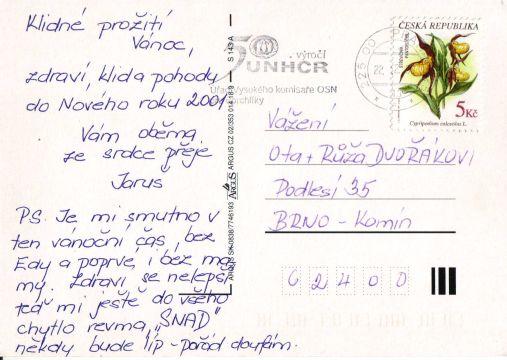 Klidné prožití
Vánoc,
zdraví, klid a pohody
do Nového roku 2001
Vám oběma
ze srdce přeje
Jaruš
PS. Je mi smutno v
ten vánoční čas, bez
Edy a poprvé i bez ma
my. Zdraví se nelepší
teď mi ještě do všeho
chytlo revma, "SNAD"
někdy bude líp - pořád doufám.
ARGUS SK-0838/7746193 ARGUS ARGUS CZ 02/353 014 16-9 S 143 A
50 výročí
UNHCR
Úřad Vysokého komisaře OSN
uprchlíky
225 00
ČESKÁ REPUBLIKA
5 Kč
Cypripedium calceolus L.
Vážení
Ota + Růža DVOŘÁKOVI
Podlesí 35
BRNO - Komín
62400